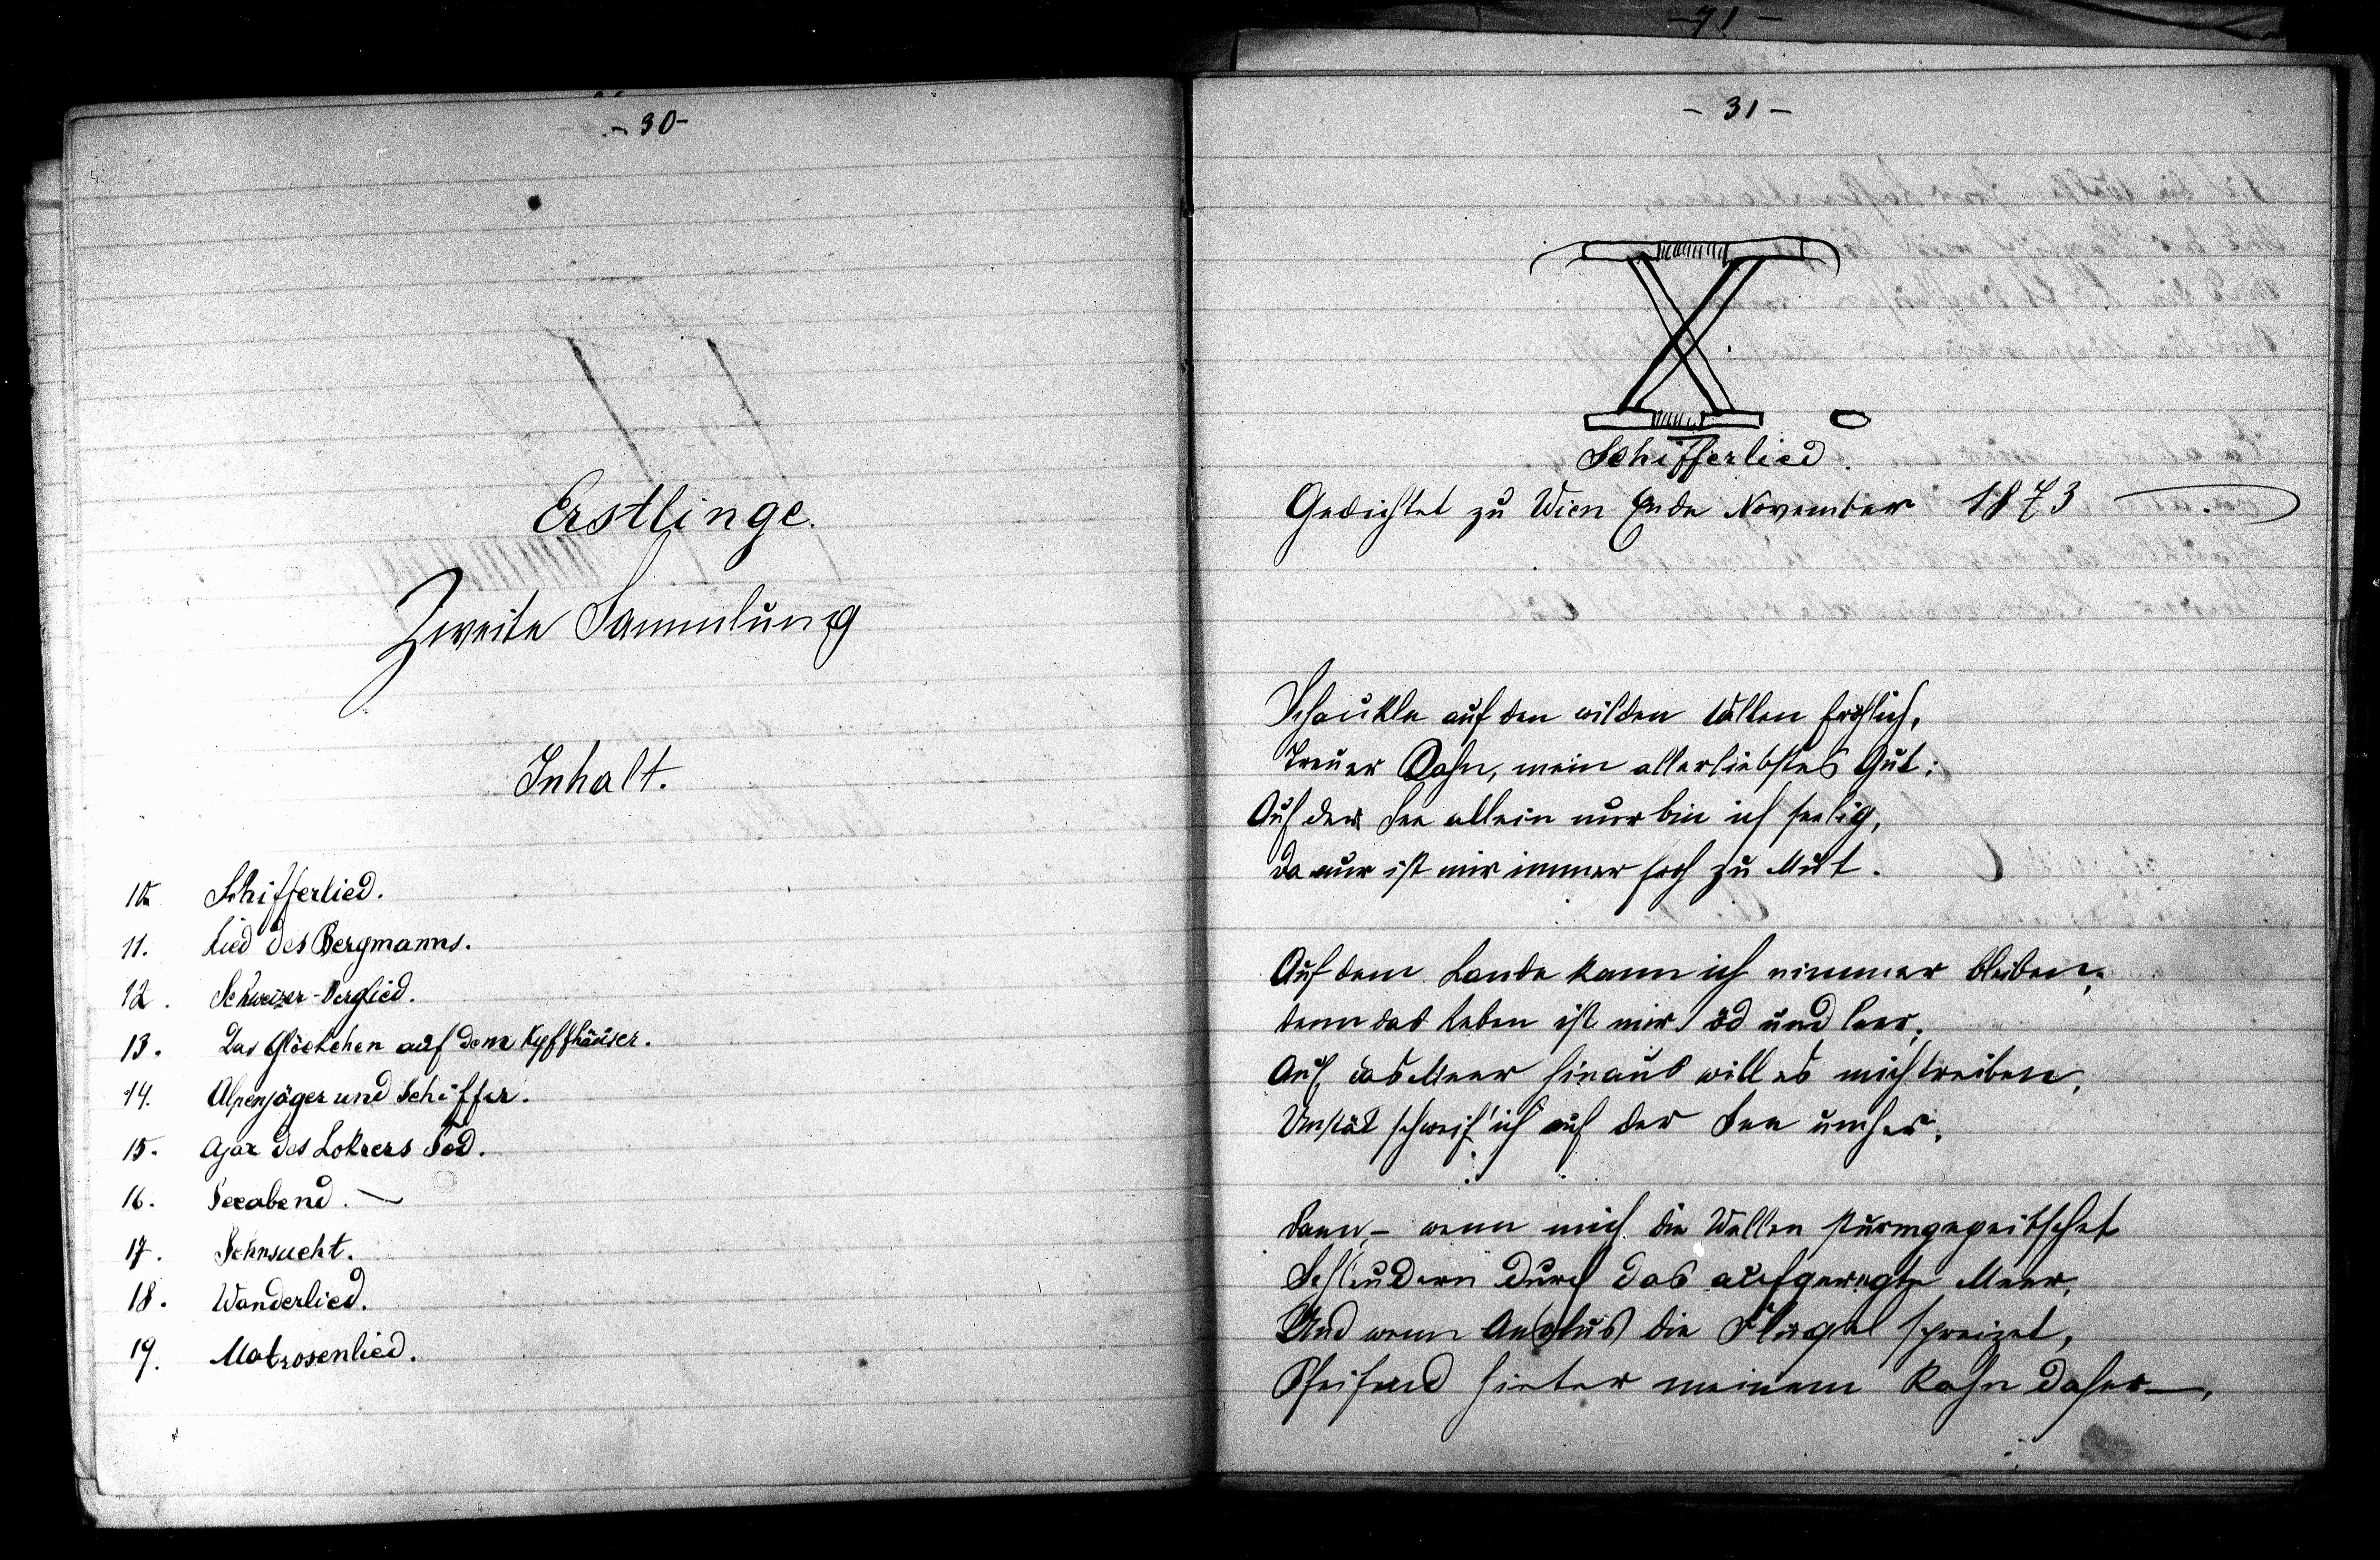 - 30 -
Erstlinge.
Zweite Sammlung
Inhalt.
10. Schifferlied.
11. Lied des Bergmanns.
12. Schweizer-Berglied.
13. Das Glöckchen auf dem Kyffhäuser.
14. Alpenjäger und Schiffer.
15. Ajax des Lokrers Tod.
16. Seeabend. —
17. Sehnsucht.
18. Wanderlied.
19. Matrosenlied.
- 71 -
- 31 -
X.
Schifferlied.
Gedichtet zu Wien Ende November 1873
Schaukle auf den wilden Wellen fröhlich,
Treuer Kahn, mein allerliebstes Gut;
Auf der See allein nur bin ich seelig,
Da nur ist mir immer froh zu Mut.
Auf dem Lande kann ich nimmer bleiben,
denn das Leben ist mir öd und leer;
Auf das Meer hinaus will es mich treiben,
Unstät schweif' ich auf der See umher.
Dann, - wenn mich die Wellen sturmgepeitschet
Schleudern durch das aufgeregte Meer,
Und wenn Aeolus die Flügel spreizet,
Pfeifend hinter meinem Kahn daher —,